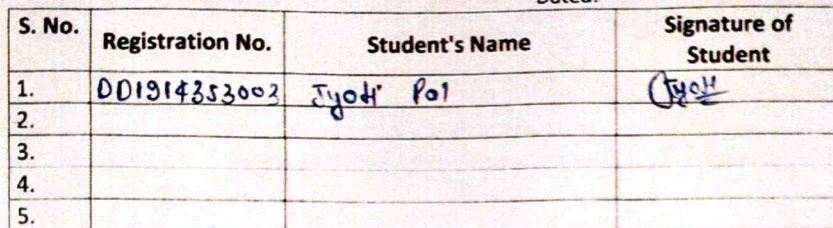 Dated:
S. No. Registration No. Student's Name Signature of Student
1. DD1914353003 Jyoti Pal Jyoti
2.
3.
4.
5.